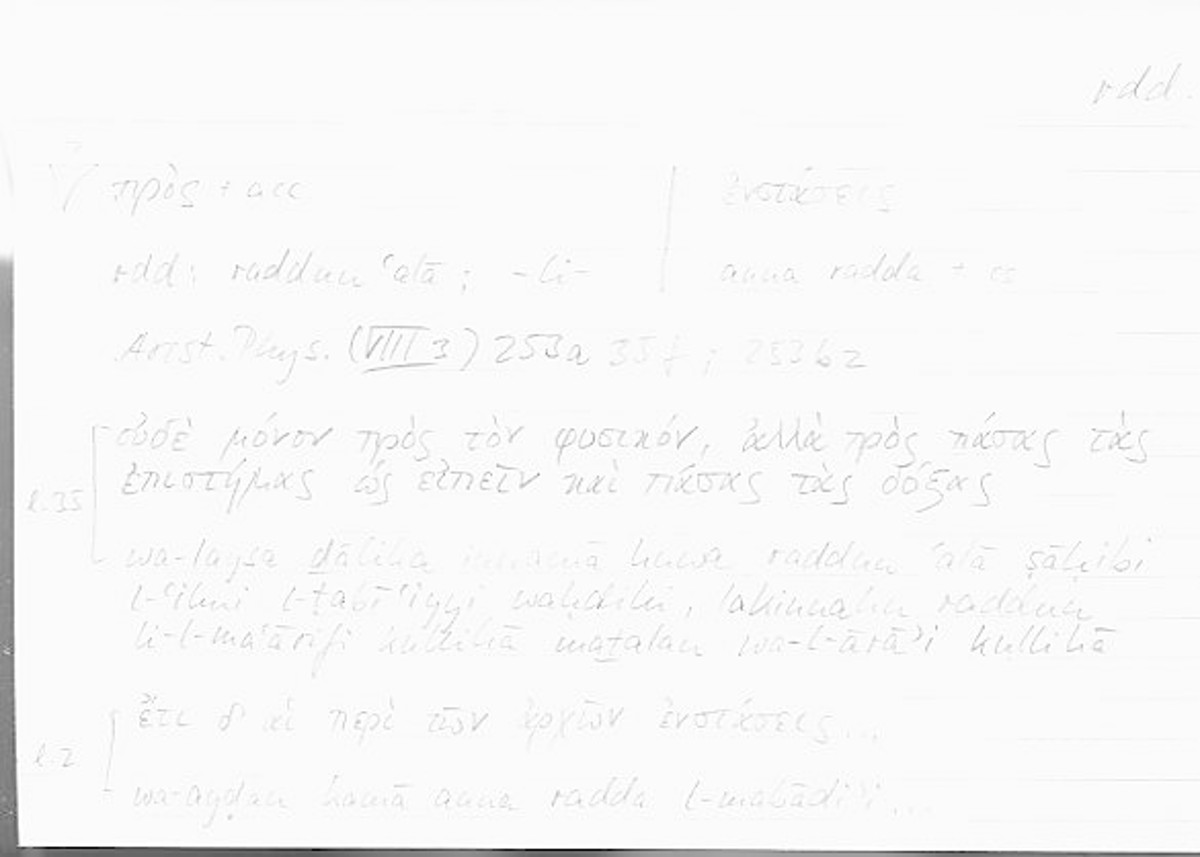 rdd.
πρὸς + acc | ἐνστάσεις
rdd: raddun ʿalā ; -li- | anna radda + cs
Arist. Phys. (VIII 3) 253a 35 f ; 253b 2
οὐδὲ μόνον πρὸς τὸν φυσικόν, ἀλλὰ πρὸς πάσας τὰς
l. 35 ἐπιστήμας ὡς εἰπεῖν καὶ πάσας τὰς δόξας
wa-laysa ḏālika innamā huwa raddun ʿalā ṣāḥibi
l-ʿilmi l-ṭabīʿiyyi waḥdihi, lakinnahu raddun
li-l-maʿārifi kullihā maṯalan wa-l-ārāʾi kullihā
ἔτι δ' αἱ περὶ τῶν ἀρχῶν ἐνστάσεις...
l. 2
wa-ayḍan kamā anna radda l-mabādiʾi ...